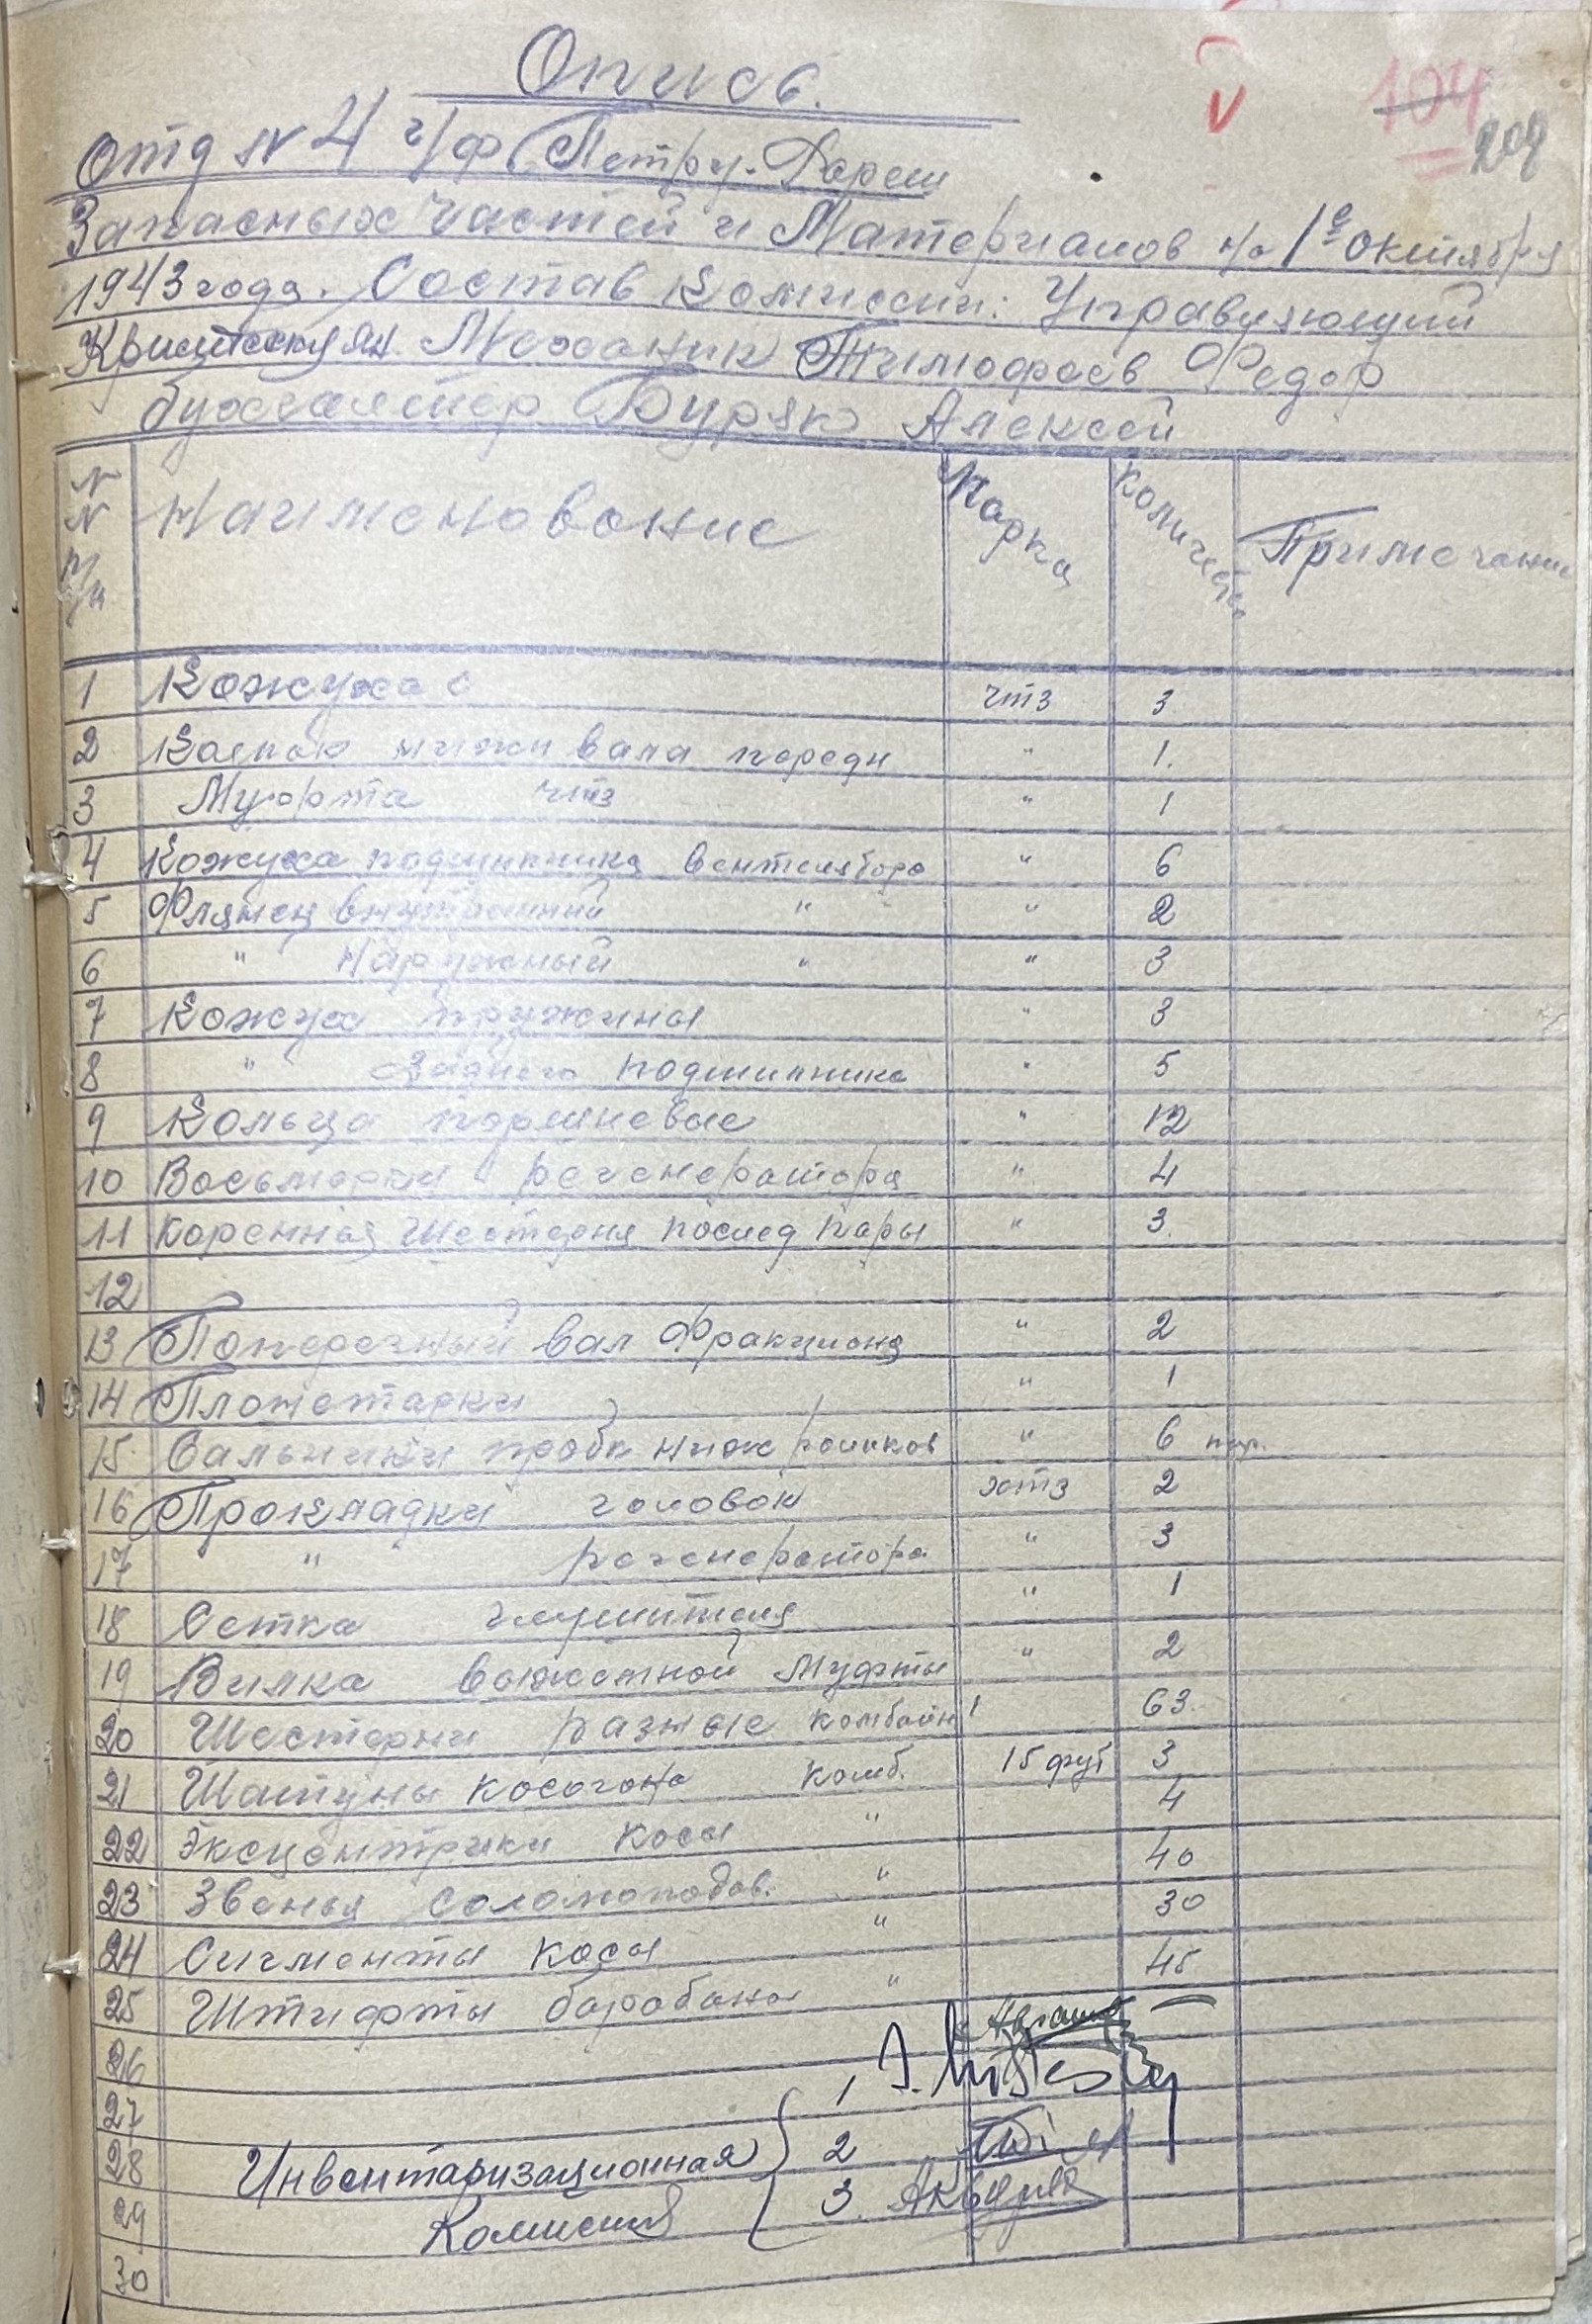 Опись.
104
202
Отд N 4 г/ф. Петру-Рареш
Запасных частей и Материалов на 1е октября
1943 года. Состав Комиссии: Управляющий
Механик Тимофеев Федор
бухгалтер Буряк Алексей
N N п/п Наименование Марка Количество Примечание
1 Кожуха чтз 3
2 Колпак нижн вала передн " 1.
3 Муфта чтз " 1
4 Кожуха подшипника вентелятора " 6
5 Флянец внутренний " " 2
6 " Наружный " " 3
7 Кожух пружины " 3
8 " Заднего подшипника " 5
9 Кольца поршневые " 12
10 Восьмерки регенератора " 4
11 Коренная Шестерня послед пары " 3
12
13 Поперечный вал Фракциона " 2
14 Планетарки " 1
15 Сальники пробк ниж роликов " 6 пар.
16 Прокладки головок хтз 2
17 " регенератора " 3
18 Сетка глушителя " 1
19 Вилка выжемной Муфты " 2
20 Шестерни разные комбайн 63.
21 Шатуны косогона комб. 15 фут 3
22 Эксцентрики косы " 4
23 Звенья соломоподов. " 40
24 Сигменты косы " 30
25 Штифты барабана " 45
26
27 1
28 Инвентаризационная 2
29 Комиссия 3.
30